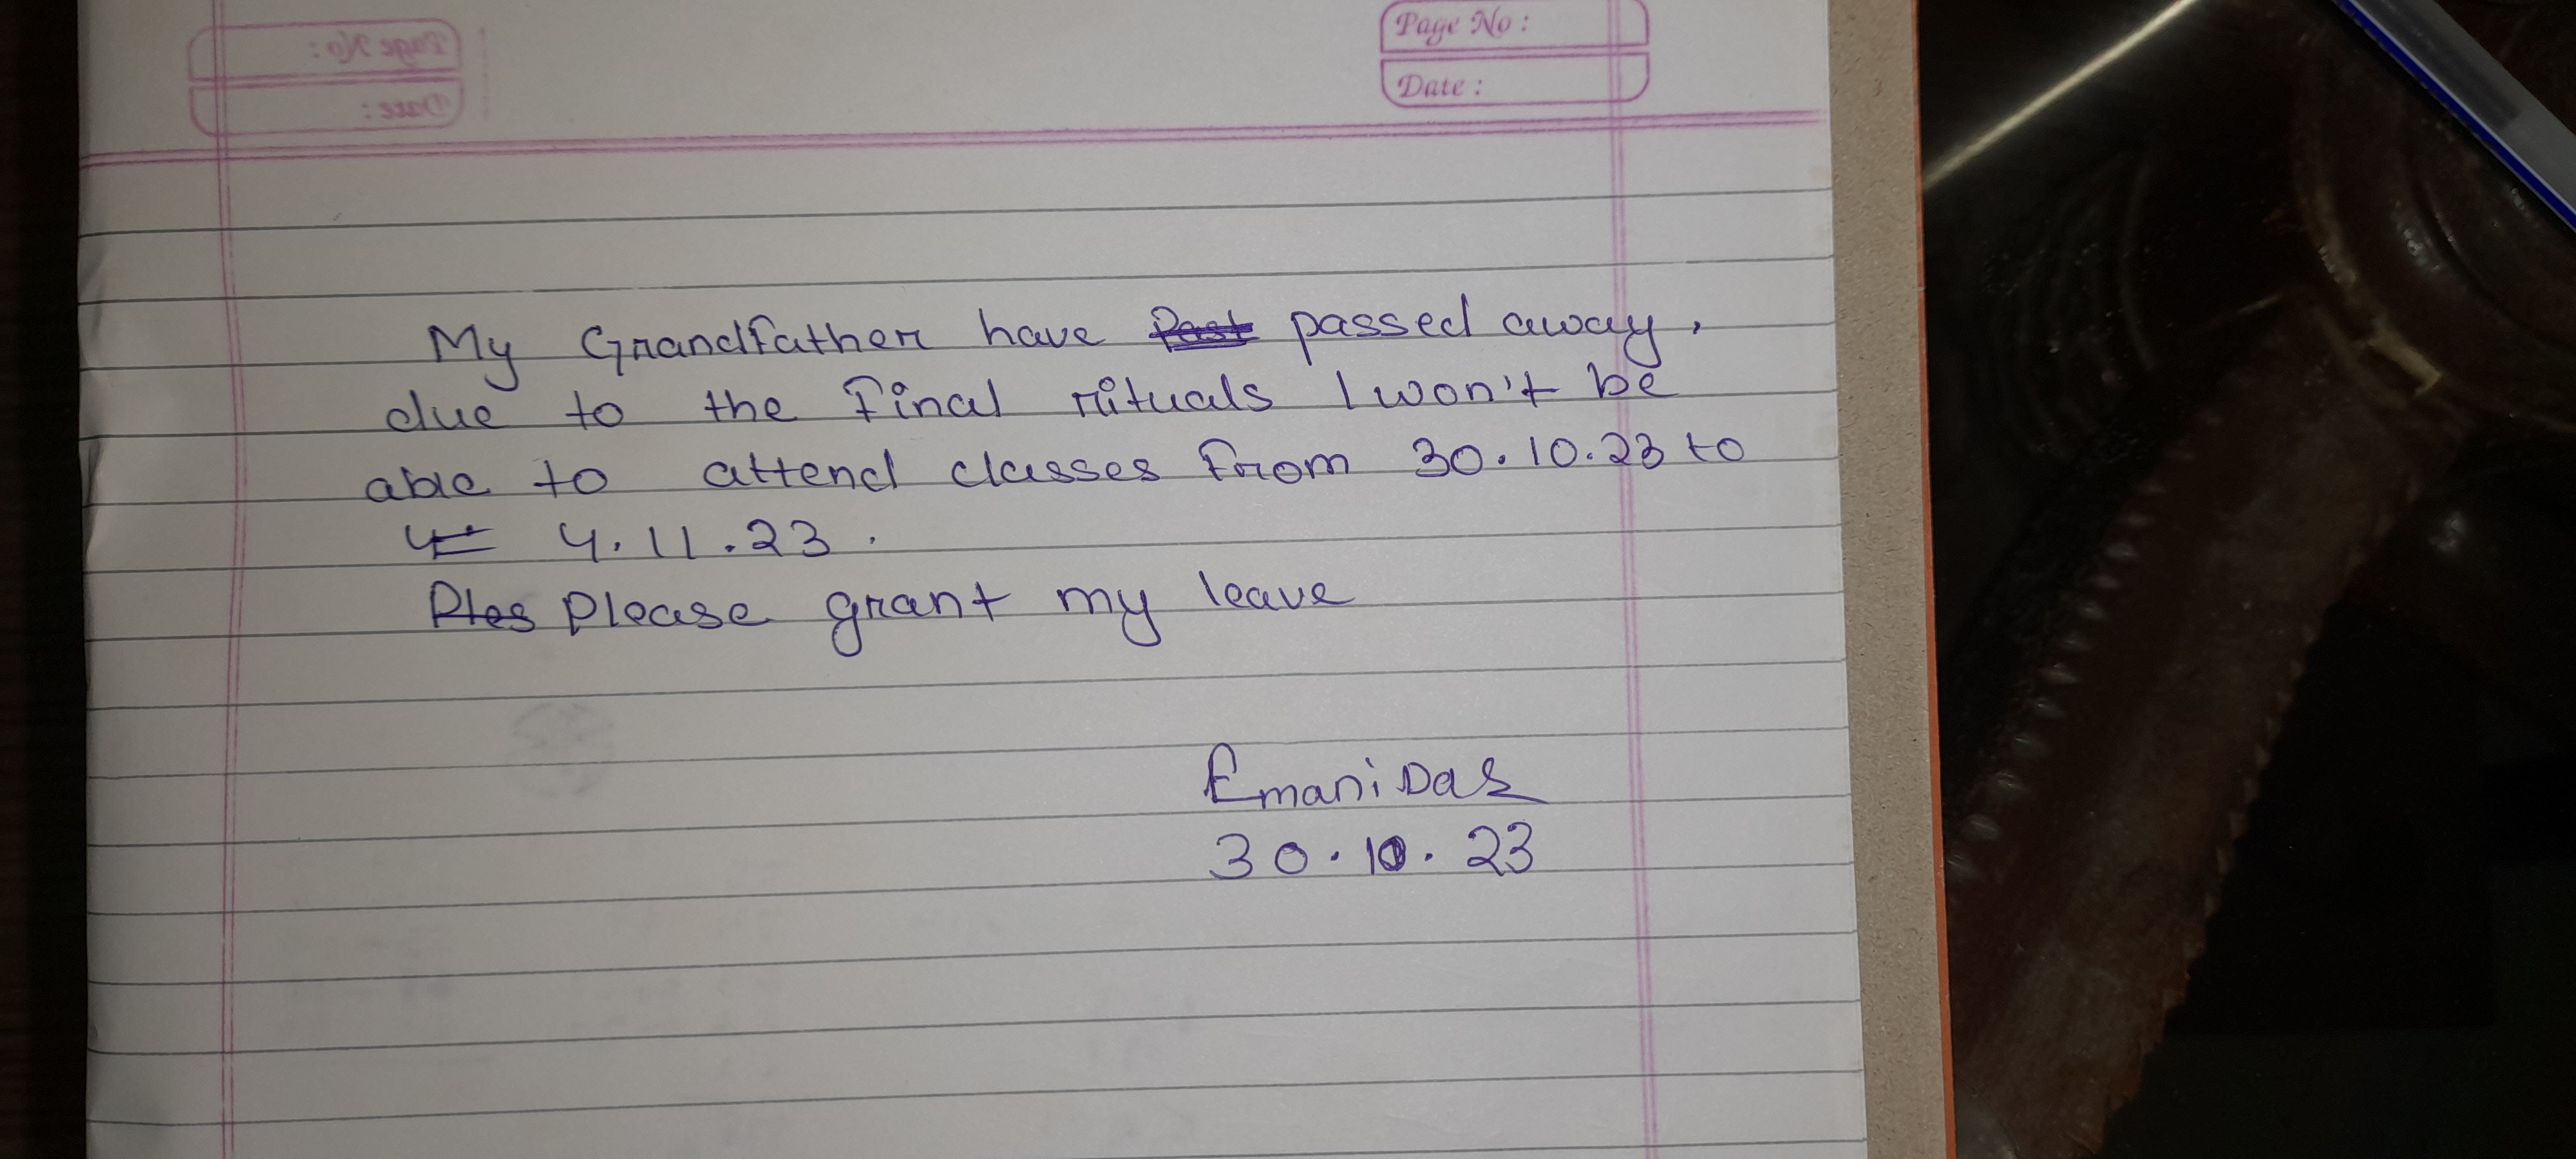 Page No :
Date :
My Grandfather have past passed away,
due to the final rituals I won't be
able to attend classes from 30.10.23 to
4 4.11.23.
Ples Please grant my leave
Emani Das
30.10.23